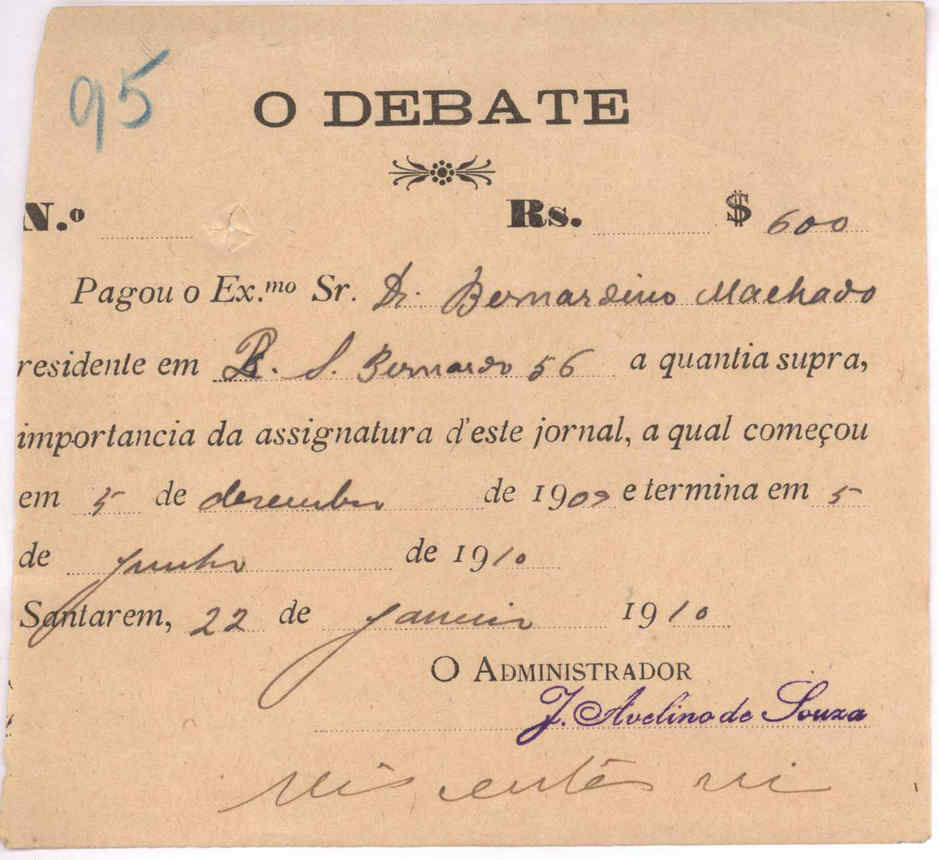 95
O DEBATE
N.º Rs. $ 600
Pagou o Ex.mo Sr. Dr. Bernardino Machado
residente em R. S. Bernardo 56 a quantia supra,
importancia da assignatura d'este jornal, a qual começou
em 5 de desembro de 1909 e termina em 5
de junho de 1910
Santarem, 22 de janeiro 1910
O ADMINISTRADOR
J. Avelino de Souza